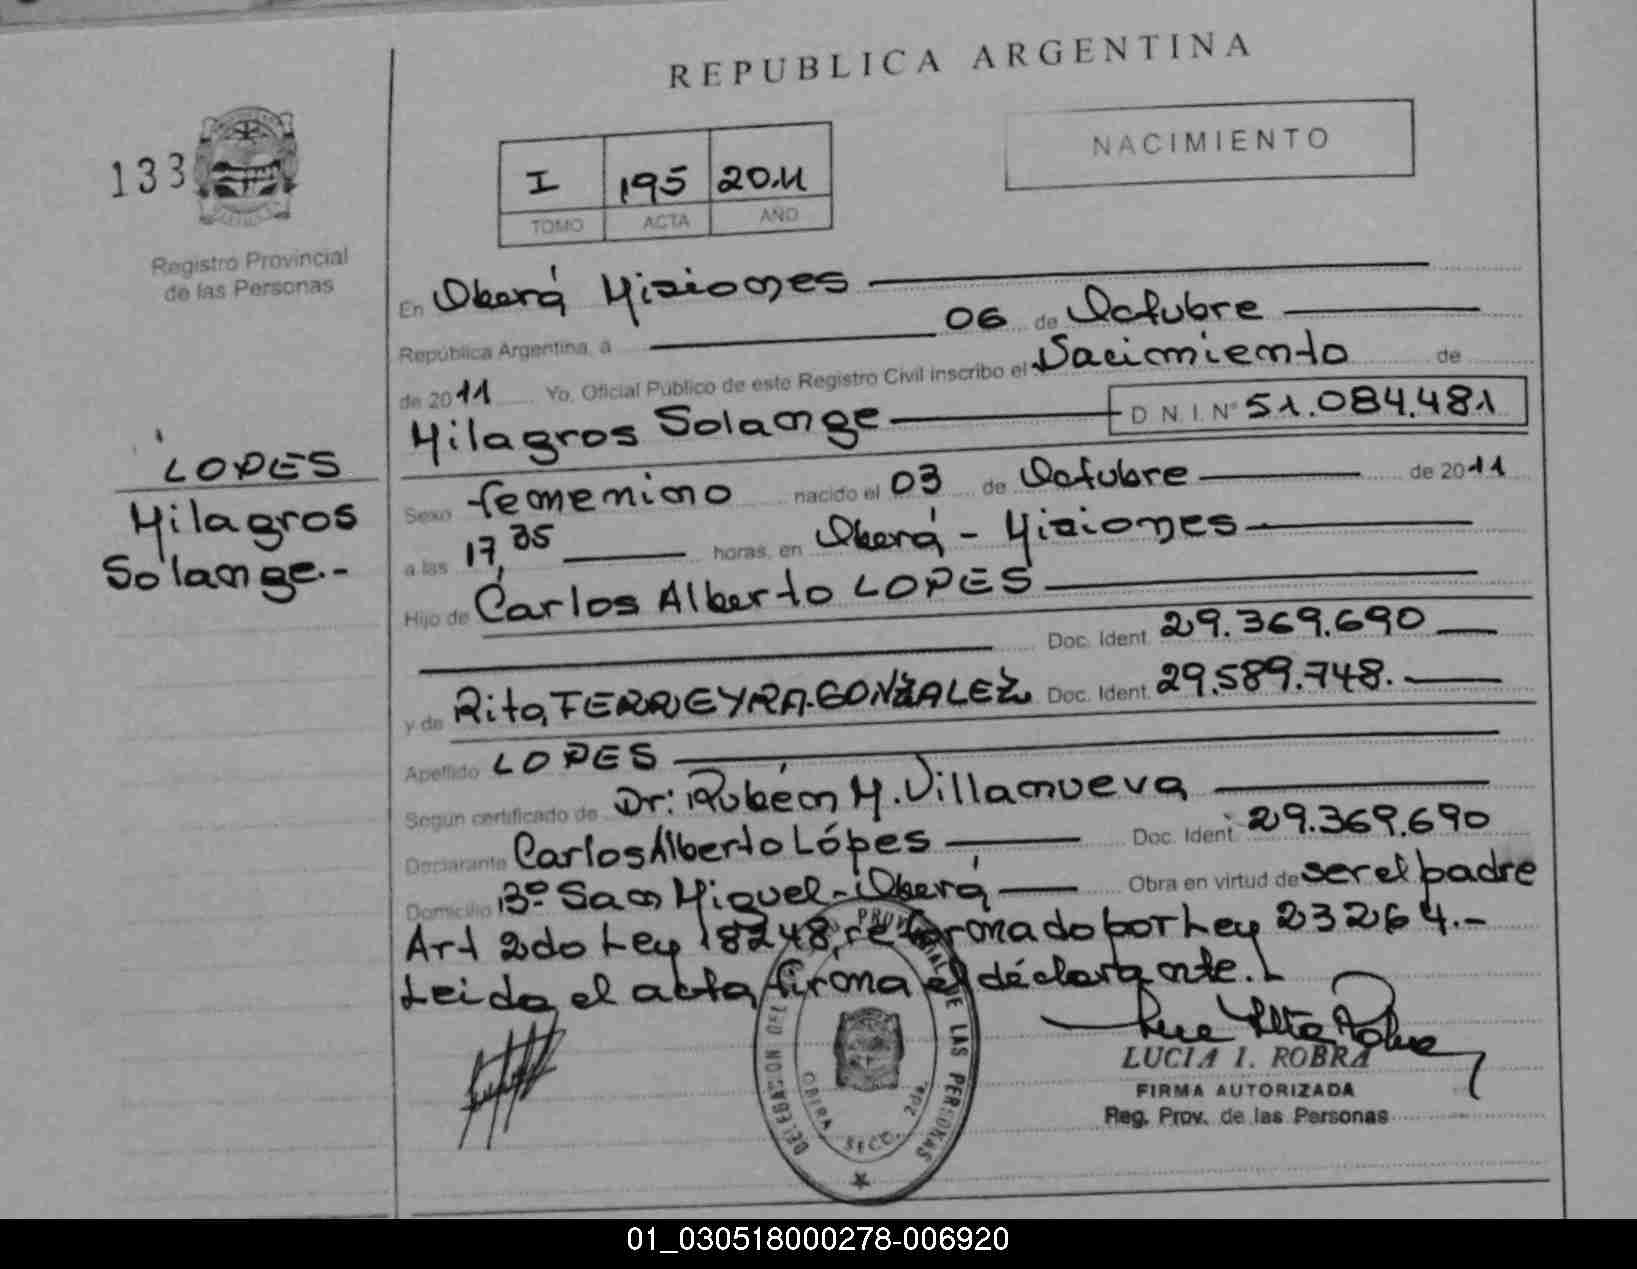 REPUBLICA ARGENTINA
NACIMIENTO
133
I 195 2011
TOMO ACTA AÑO
Registro Provincial
de las Personas
En Oberá Misiones
República Argentina, a 06 de Octubre
de 2011 Yo, Oficial Público de este Registro Civil inscribo el Nacimiento de
Milagros Solange D. N. I. N° 51.084.481
LOPES
Milagros
Solange.-
Sexo femenino nacido el 03 de Octubre de 2011
a las 17,35 horas, en Oberá - Misiones
Hijo de Carlos Alberto LOPES
Doc. Ident. 29.369.690
y de Rita, FERREYRA-GONZALEZ Doc. Ident. 29.589.748.-
Apellido LOPES
Según certificado de Dr: Rubén M. Villanueva
Declarante Carlos Alberto Lópes Doc. Ident. 29.369.690
Domicilio B° San Miguel - Oberá Obra en virtud de ser el padre
Art 2do Ley 18248, reformado por Ley 23264.-
Leida el acta, firma el declarante.
LUCIA I. ROBRA
FIRMA AUTORIZADA
Reg. Prov. de las Personas
DELEGACION DEL PROVINCIAL DE LAS PERSONAS
OBERA SECC. 2da.
01_030518000278-006920